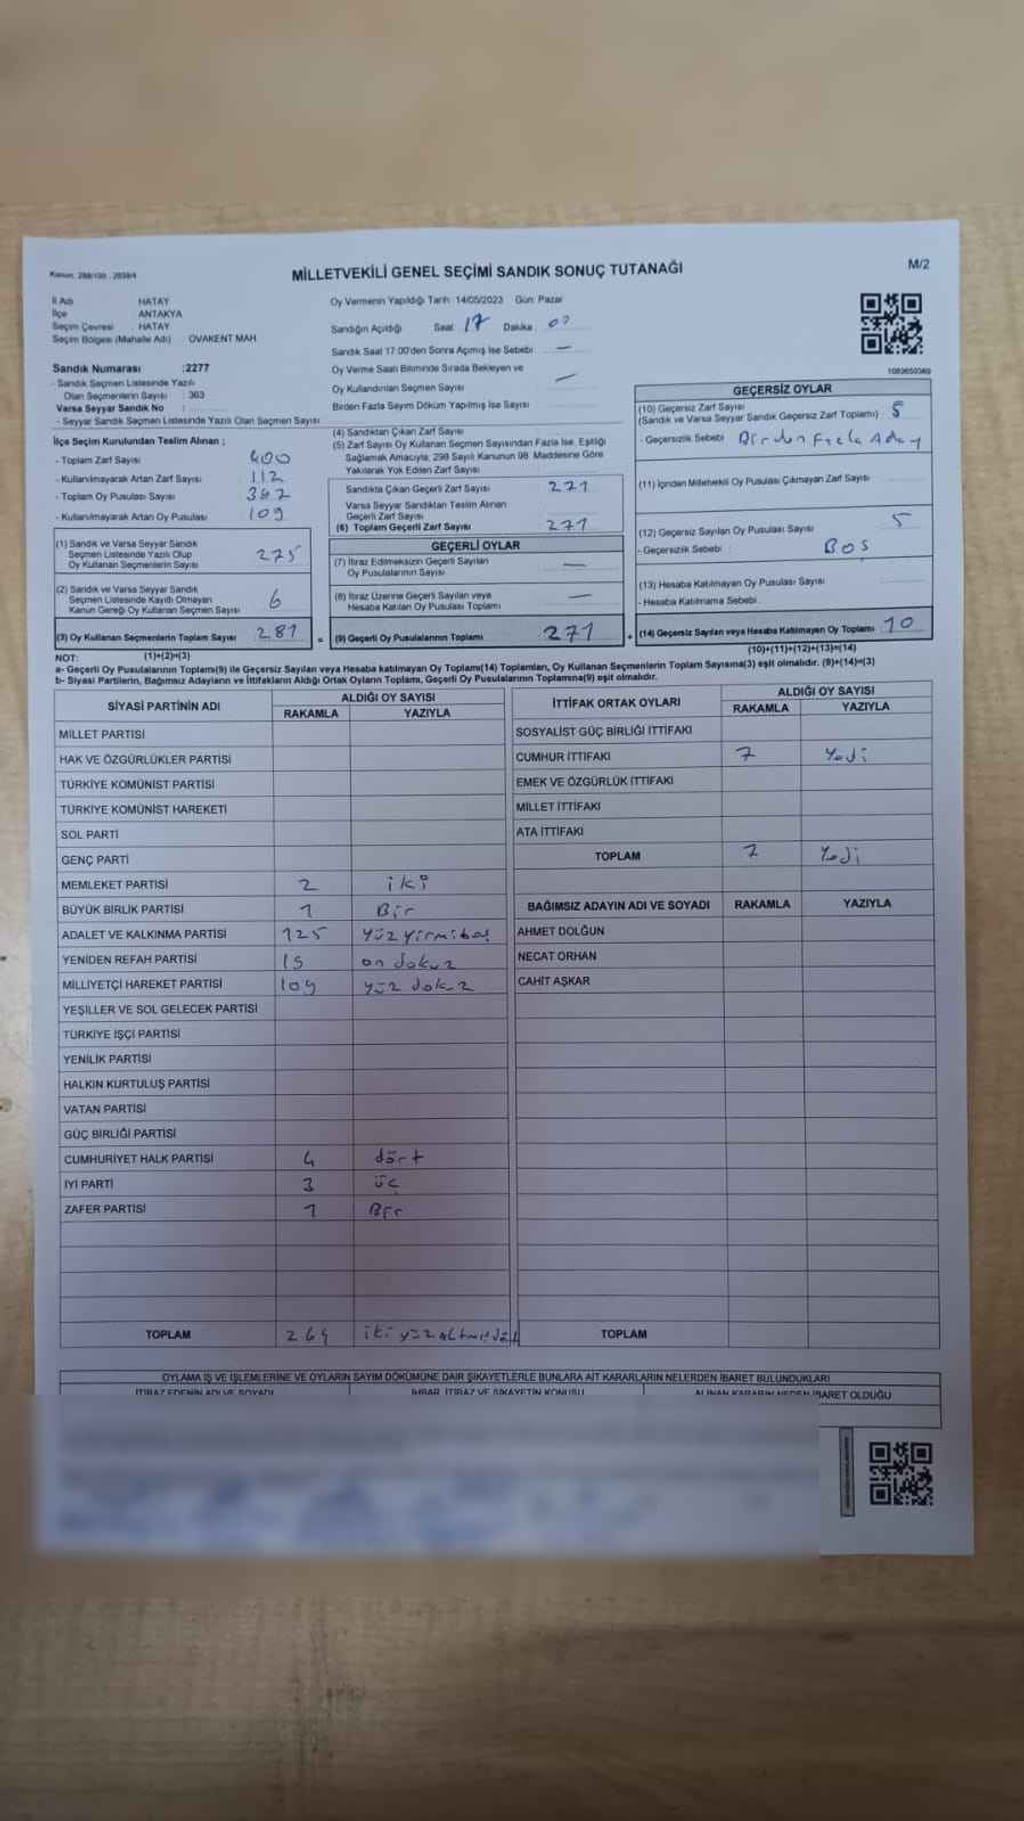 MİLLETVEKİLİ GENEL SEÇİMİ SANDIK SONUÇ TUTANAĞI
M/2
İl Adı HATAY
İlçe ANTAKYA
Seçim Çevresi HATAY
Seçim Bölgesi (Mahalle Adı) OVAKENT MAH
Sandık Numarası :2277
- Sandık Seçmen Listesinde Yazılı
Olan Seçmenlerin Sayısı : 363
Varsa Seyyar Sandık No :
- Seyyar Sandık Seçmen Listesinde Yazılı Olan Seçmen Sayısı
İlçe Seçim Kurulundan Teslim Alınan ;
- Toplam Zarf Sayısı 400
- Kullanılmayarak Artan Zarf Sayısı 112
- Toplam Oy Pusulası Sayısı
- Kullanılmayarak Artan Oy Pusulası 109
(1) Sandık ve Varsa Seyyar Sandık
Seçmen Listesinde Yazılı Olup
Oy Kullanan Seçmenlerin Sayısı 275
(2) Sandık ve Varsa Seyyar Sandık
Seçmen Listesinde Kayıtlı Olmayan
Kanun Gereği Oy Kullanan Seçmen Sayısı 6
(3) Oy Kullanan Seçmenlerin Toplam Sayısı 281
(1)+(2)=(3)
Oy Vermenin Yapıldığı Tarih: 14/05/2023 Gün: Pazar
Sandığın Açıldığı Saat: 17 Dakika: 00
Sandık Saat 17:00'den Sonra Açılmış İse Sebebi: —
Oy Verme Saati Bitiminde Sırada Bekleyen ve
Oy Kullandırılan Seçmen Sayısı —
Birden Fazla Sayım Döküm Yapılmış İse Sayısı
(4) Sandıktan Çıkan Zarf Sayısı
(5) Zarf Sayısı Oy Kullanan Seçmen Sayısından Fazla İse, Eşitliği
Sağlamak Amacıyla, 298 Sayılı Kanunun 98. Maddesine Göre
Yakılarak Yok Edilen Zarf Sayısı
Sandıkta Çıkan Geçerli Zarf Sayısı 271
Varsa Seyyar Sandıktan Teslim Alınan
Geçerli Zarf Sayısı
(6) Toplam Geçerli Zarf Sayısı 271
GEÇERLİ OYLAR
(7) İtiraz Edilmeksizin Geçerli Sayılan
Oy Pusulalarının Sayısı —
(8) İtiraz Üzerine Geçerli Sayılan veya
Hesaba Katılan Oy Pusulası Toplamı —
= (9) Geçerli Oy Pusulalarının Toplamı 271
1083650369
GEÇERSİZ OYLAR
(10) Geçersiz Zarf Sayısı
(Sandık ve Varsa Seyyar Sandık Geçersiz Zarf Toplamı) : 5
- Geçersizlik Sebebi : Birden Fazla Aday
(11) İçinden Milletvekili Oy Pusulası Çıkmayan Zarf Sayısı
(12) Geçersiz Sayılan Oy Pusulası Sayısı 5
- Geçersizlik Sebebi : BOŞ
(13) Hesaba Katılmayan Oy Pusulası Sayısı
- Hesaba Katılmama Sebebi
+ (14) Geçersiz Sayılan veya Hesaba Katılmayan Oy Toplamı 10
(10)+(11)+(12)+(13)=(14)
NOT:
a- Geçerli Oy Pusulalarının Toplamı(9) ile Geçersiz Sayılan veya Hesaba katılmayan Oy Toplamı(14) Toplamları, Oy Kullanan Seçmenlerin Toplam Sayısına(3) eşit olmalıdır. (9)+(14)=(3)
b- Siyasi Partilerin, Bağımsız Adayların ve İttifakların Aldığı Ortak Oyların Toplamı, Geçerli Oy Pusulalarının Toplamına(9) eşit olmalıdır.
SİYASİ PARTİNİN ADI ALDIĞI OY SAYISI
RAKAMLA YAZIYLA
MİLLET PARTİSİ
HAK VE ÖZGÜRLÜKLER PARTİSİ
TÜRKİYE KOMÜNİST PARTİSİ
TÜRKİYE KOMÜNİST HAREKETİ
SOL PARTİ
GENÇ PARTİ
MEMLEKET PARTİSİ 2 iki
BÜYÜK BİRLİK PARTİSİ 1 Bir
ADALET VE KALKINMA PARTİSİ 125 yüz yirmi beş
YENİDEN REFAH PARTİSİ 19 on dokuz
MİLLİYETÇİ HAREKET PARTİSİ 109 yüz dokuz
YEŞİLLER VE SOL GELECEK PARTİSİ
TÜRKİYE İŞÇİ PARTİSİ
YENİLİK PARTİSİ
HALKIN KURTULUŞ PARTİSİ
VATAN PARTİSİ
GÜÇ BİRLİĞİ PARTİSİ
CUMHURİYET HALK PARTİSİ 4 dört
İYİ PARTİ 3 üç
ZAFER PARTİSİ 1 Bir
TOPLAM 264 iki yüz altmış dört
İTTİFAK ORTAK OYLARI ALDIĞI OY SAYISI
RAKAMLA YAZIYLA
SOSYALİST GÜÇ BİRLİĞİ İTTİFAKI
CUMHUR İTTİFAKI 7 Yedi
EMEK VE ÖZGÜRLÜK İTTİFAKI
MİLLET İTTİFAKI
ATA İTTİFAKI
TOPLAM 7 Yedi
BAĞIMSIZ ADAYIN ADI VE SOYADI RAKAMLA YAZIYLA
AHMET DOLĞUN
NECAT ORHAN
CAHİT AŞKAR
TOPLAM
OYLAMA İŞ VE İŞLEMLERİNE VE OYLARIN SAYIM DÖKÜMÜNE DAİR ŞİKAYETLERLE BUNLARA AİT KARARLARIN NELERDEN İBARET BULUNDUKLARI
İTİRAZ EDENİN ADI VE SOYADI İHBAR, İTİRAZ VE ŞİKAYETİN KONUSU ALINAN KARARIN NEDEN İBARET OLDUĞU